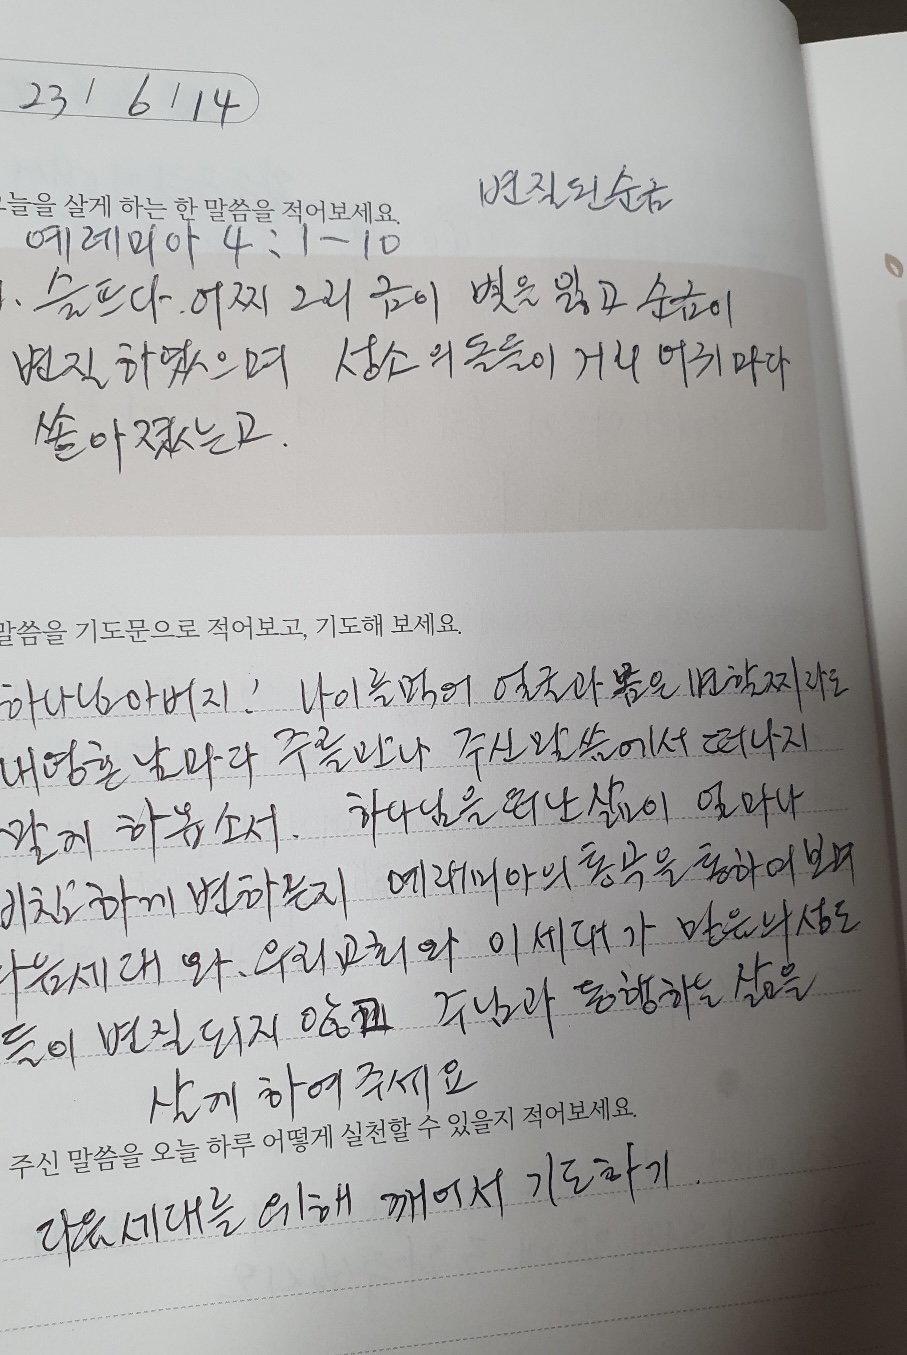 23 / 6 / 14
변질된 순금
오늘을 살게 하는 한 말씀을 적어보세요.
예레미아 4 : 1 - 10
1. 슬프다. 어찌 그리 금이 빛을 잃고 순금이
변질 하였으며 성소의 돌들이 거리 어귀마다
쏟아졌는고.
말씀을 기도문으로 적어보고, 기도해 보세요.
하나님 아버지! 나이들먹어 얼굴과 몸은 변할찌라도
내영혼 날마다 주를만나 주신 말씀에서 떠나지
않게 하옵소서. 하나님을 떠난 삶이 얼마나
비참하게 변하는지 예래미아의 통곡을 통하여 보며
다음세대 와. 우리교회와 이세대가 믿음의 성도
들이 변질 되지 않고 주님과 동행하는 삶을
살게 하여주세요
주신 말씀을 오늘 하루 어떻게 실천할 수 있을지 적어보세요.
다음세대를 위해 깨어서 기도하기.